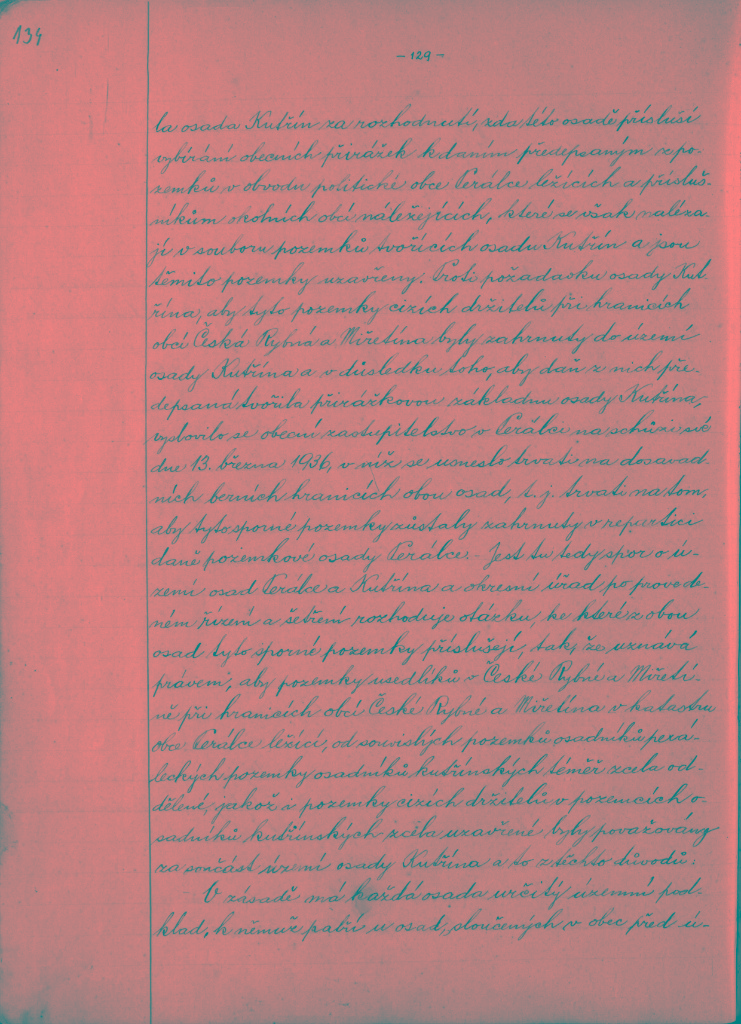 134
- 129 -
la osada Kutřín za rozhodnutí, zda této osadě přísluší
vybírání obecních přirážek k daním předepsaným z po-
zemků v obvodu politické obce Perálce ležících a přísluš-
níkům okolních obcí náležejících, které se však naléza-
jí v souboru pozemků tvořících osadu Kutřín a jsou
těmito pozemky uzavřeny. Proti požadavku osady Kut-
řína, aby tyto pozemky cizích držitelů při hranicích
obcí Česká Rybná a Miřetína byly zahrnuty do území
osady Kutřína a v důsledku toho, aby daň z nich pře-
depsaná tvořila přirážkovou základnu osady Kutřína,
vyslovilo se obecní zastupitelstvo v Perálci na schůzi své
dne 13. března 1936, v níž se usneslo trvati na dosavad-
ních berních hranicích obou osad, t. j. trvati na tom,
aby tyto sporné pozemky zůstaly zahrnuty v repartici
daně pozemkové osady Perálce. - Jest tu tedy spor o ú-
zemí osad Perálce a Kutřína a okresní úřad po provede-
ném řízení a šetření rozhoduje otázku, ke které z obou
osad tyto sporné pozemky příslušejí, tak, že uznává
právem, aby pozemky usedlíků v České Rybné a Miřetí-
ně při hranicích obcí České Rybné a Miřetína v katastru
obce Perálce ležící, od souvislých pozemků osadníků perá-
leckých pozemky osadníků kutřínských téměř zcela od-
dělené, jakož i pozemky cizích držitelů v pozemcích o-
sadníků kutřínských zcela uzavřené byly považovány
za součást území osady Kutřína a to z těchto důvodů:
V zásadě má každá osada určitý územní pod-
klad, k němuž patří u osad, sloučených v obec před ú-